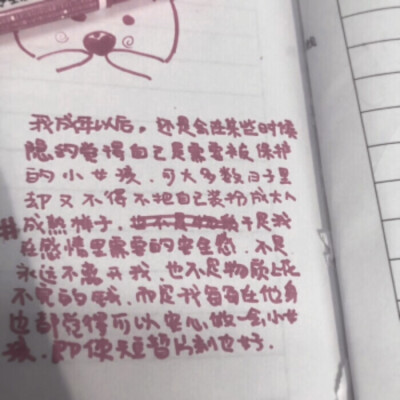 我成年以后，还是会在某些时候
隐约觉得自己是需要被保护
的小女孩.可大多数日子里
却又不得不把自己装扮成大人
成熟样子.于是我
在感情里需要的安全感.不是
永远不离开我.也不是物质上花
不完的钱.而是我每每在他身
边都觉得可以安心做一会小女
孩.即使短暂片刻也好.